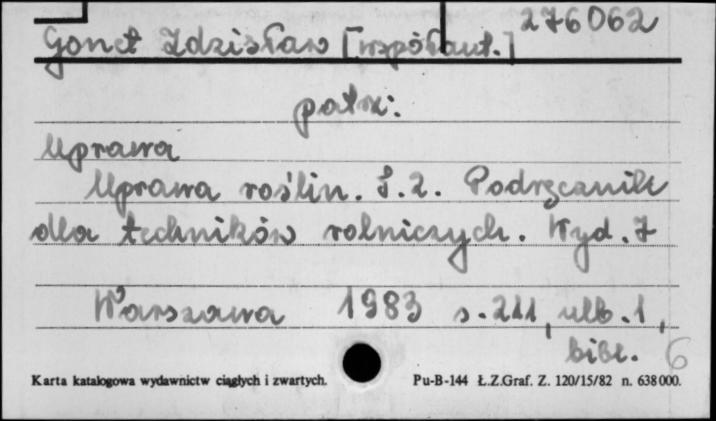 276062
Gonet Zdzisław [współaut.]
patrz:
Uprawa
Uprawa roślin. T.2. Podręcznik
dla techników rolniczych. Wyd. 7
Warszawa 1983 s. 211, nlb. 1,
bibl. 6
Karta katalogowa wydawnictw ciągłych i zwartych. Pu-B-144 Ł.Z.Graf. Z. 120/15/82 n. 638000.